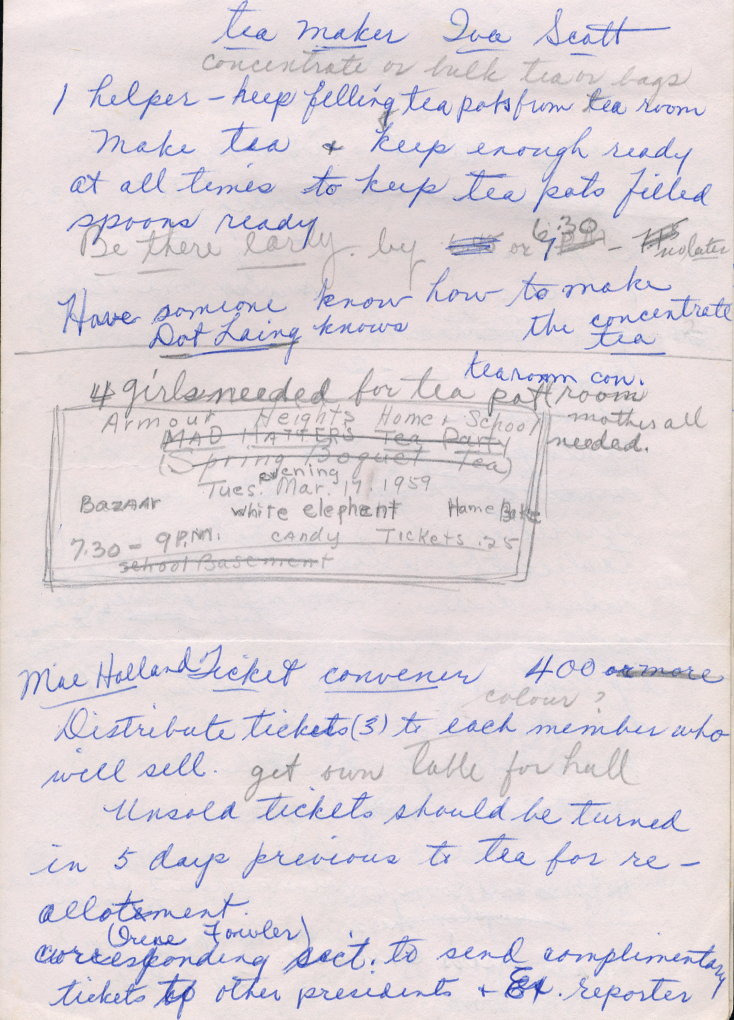 tea maker Iva Scott
concentrate or bulk tea or bags
1 helper - keep filling tea pots from tea room
Make tea & keep enough ready
at all times to keep tea pots filled
spoons ready
Be there early. by or 6:30 7 PM - no later
Have someone know how to make
Dot Laing knows the concentrate
tea
tearoom con.
4 girls needed for tea pot room
mothers all
needed.
Armour Heights Home & School
MAD HATTERS Tea Party
(Spring Boquet Tea)
evening
Tues. Mar. 17. 1959
Bazaar white elephant Home Bake
7.30 - 9 P.M. candy Tickets .25
school Basement
Mae Holland Ticket convener 400 or more
colour ?
Distribute tickets (3) to each member who
will sell. get own table for hall
Unsold tickets should be turned
in 5 days previous to tea for re-
allotment.
(Irene Fowler)
corresponding sect. to send complimentary
tickets to other presidents & Ex. reporter